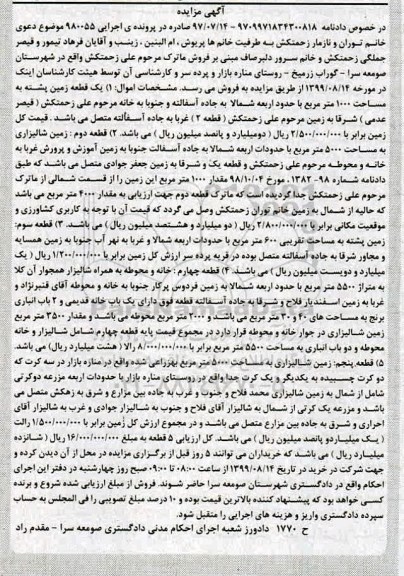 آگهی مزایده
در خصوص دادنامه ۹۷۰۹۹۷۱۸۳۴۳۰۰۸۱۸ - ۹۷/۰۷/۱۴ صادره در پرونده ی اجرایی ۹۸۰۰۵۵ موضوع دعوی
خانم توران و نازمار زحمتکش به طرفیت خانم ها پریوش ، ام البنین ، زینب و آقایان فرهاد تیمور و قیصر
جملگی زحمتکش و خانم سرور دلیرصاف مبنی بر فروش ماترک مرحوم علی زحمتکش واقع در شهرستان
صومعه سرا - گوراب زرمیخ - روستای مناره بازار و پرده سر و کارشناسی آن توسط هیئت کارشناسان اینک
در مورخه ۱۳۹۹/۰۸/۱۴ از طریق مزایده به فروش می رسد. مشخصات اموال: ۱) یک قطعه زمین پشته به
مساحت ۱۰۰۰ متر مربع با حدود اربعه شمالا به جاده آسفالته و جنوبا به خانه مرحوم علی زحمتکش ( قیصر
عدمی ) شرقا به زمین مرحوم علی زحمتکش ( قطعه ۲ ) غربا به جاده آسفالته متصل می باشد . قیمت کل
زمین برابر با ۲/۵۰۰/۰۰۰/۰۰۰ ریال (دومیلیارد و پانصد میلیون ریال ) می باشد. ۲) قطعه دوم : زمین شالیزاری
به مساحت ۵۰۰۰ متر مربع با حدودات اربعه شمالا به جاده آسفالت جنوبا به زمین آموزش و پرورش غربا به
خانه و محوطه مرحوم علی زحمتکش و قطعه یک و شرقا به زمین جعفر جوادی متصل می باشد که طبق
دادنامه شماره ۹۸- ۱۳۸۲ مورخ ۹۸/۱۰/۰۴ مقدار ۱۰۰۰ متر مربع این زمین را از قسمت شمالی از ماترک
مرحوم علی زحمتکش جدا گردیده است که ماترک قطعه دوم جهت ارزیابی به مقدار ۴۰۰۰ متر مربع می باشد
که حالیه از شمال به زمین خانم توران زحمتکش وصل می گردد که قیمت آن با توجه به کاربری کشاورزی و
موقعیت مکانی برابر با ۲/۸۰۰/۰۰۰/۰۰۰ ریال ( دو میلیارد و هشتصد میلیون ریال ) می باشد. ۳) قطعه سوم:
زمین پشته به مساحت تقریبی ۶۰۰ متر مربع با حدودات اربعه شمالا و غربا به نهر آب جنوبا به زمین همسایه
و مجاور شرقا به جاده آسفالته متصل بوده در قریه پرده سر ارزش کل زمین برابر با ۱/۲۰۰/۰۰۰/۰۰۰ ریال ( یک
میلیارد و دویست میلیون ریال ) می باشد. ۴) قطعه چهارم : خانه و محوطه به همراه شالیزار همجوار آن کلا
به متراژ ۵۵۰۰ متر مربع با حدود اربعه شمالا به زمین فردوس پرکار جنوبا به خانه و محوطه آقای قنبرنژاد و
غربا به زمین اسفندیار فلاح و شرقا به جاده آسفالته قطعه فوق دارای یک باب خانه قدیمی و ۲ باب انباری
برنج به مساحت های ۴۰ و ۳۰ متر مربع می باشد. و ۲۰۰۰ متر مربع محوطه می باشد و مقدار ۳۵۰۰ متر مربع
زمین شالیزاری در جوار خانه و محوطه قرار دارد در مجموع قیمت پایه قطعه چهارم شامل شالیزار و خانه
محوطه و دو باب انباری به مساحت ۵۵۰۰ متر مربع برابر با ۸/۰۰۰/۰۰۰/۰۰۰ رالا ( هشت میلیارد ریال) می باشد.
۵) قطعه پنجم: زمین شالیزاری به مساحت ۵۰۰۰ متر مربع بهزراعی شده واقع در مناره بازار در سه کرت که
دو کرت چسبیده به یکدیگر و یک کرت جدا واقع در روستای مناره بازار با حدودات اربعه مزرعه دوکرتی
شامل از شمال به زمین شالیزاری محمد فلاح و جنوب و غرب به جاده بین مزارع و شرق به زهکش متصل می
باشد و مزرعه یک کرتی از شمال به شالیزار آقای فلاح و جنوب به شالیزار جوادی و غرب به شالیزار آقای
احراری و شرق به جاده بین مزارع متصل می باشد و در مجموع ارزش کل زمین برابر با ۱/۵۰۰/۰۰۰/۰۰۰ رالت
( یک میلیاردو پانصد میلیون ریال ) می باشد. کل ارزیابی ۵ قطعه به مبلغ ۱۶/۰۰۰/۰۰۰/۰۰۰ ریال ( شانزده
میلیارد ریال ) می باشد که خریداران می توانند ۵ روز قبل از برگزاری مزایده در محل از آن دیدن کرده و
جهت شرکت در خرید در تاریخ ۱۳۹۹/۰۸/۱۴ از ساعت ۰۸:۰۰ تا ۰۹:۰۰ صبح روز چهارشنبه در دفتر این اجرای
احکام واقع در دادگستری شهرستان صومعه سرا حاضر شوند. فروش از مبلغ ارزیابی شده شروع و برنده
کسی خواهد بود که پیشنهاد کننده بالاترین قیمت بوده و ۱۰ درصد مبلغ تصویبی را فی المجلس به حساب
سپرده دادگستری واریز و هزینه های اجرایی را متقبل شود.
ح ۱۷۷۰ دادورز شعبه اجرای احکام مدنی دادگستری صومعه سرا - مقدم راد